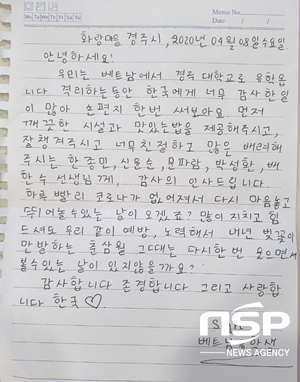 Memo No.
Mo Tu We Th Fr Sa Su
Date / /
화랑마을 경주시, 2020년 04월 08일 수요일
안녕하세요!
우리는 베트남에서 경주 대학교로 유학옵
니다. 격리하는동안 한국에게 너무 감사한일
이 많아 손편지 한번 써보아요. 먼저
깨끗한 시설과 맛있는밥을 제공해주시고,
잘 챙겨주시고 너무친절하고 많은 배려해
주시는 한종미, 신문순, 문파람, 박성환, 배
한수 선생님께, 감사의 인사드립니다.
하루 빨리 코로나가 없어져서 다시 마음놓고
뛰어놀수있는 날이 오겠죠? 많이 지치고 힘
드셔도 우리 같이 예방, 노력해서 내년 벚꽃이
만방하는 춘삼월 그때는 다시한번 웃으면서
볼수있는 날이 있지않을까요?
감사합니다 존경합니다 그리고 사랑합
니다 한국♡.
NSP
NEWS AGENCY